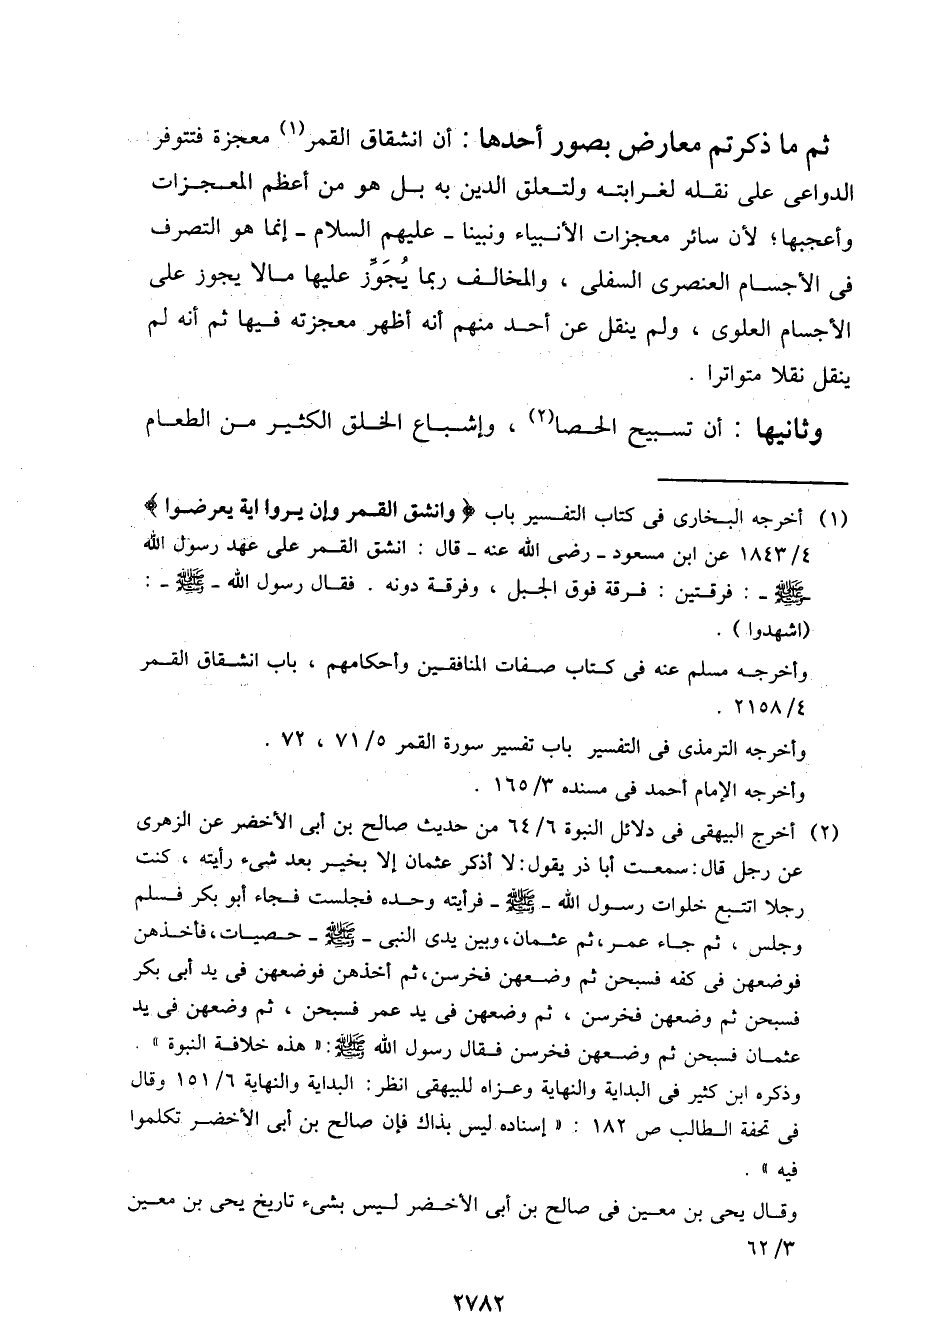 ثم ما ذكرتم معارض بصور أحدها : أن انشقاق القمر(١) معجزة فتتوفر
الدواعى على نقله لغرابته ولتعلق الدين به بل هو من أعظم المعجزات
وأعجبها؛ لأن سائر معجزات الأنبياء ونبينا ـ عليهم السلام ـ إنما هو التصرف
فى الأجسام العنصرى السفلى ، والمخالف ربما يُجَوِّز عليها مالا يجوز على
الأجسام العلوى ، ولم ينقل عن أحد منهم أنه أظهر معجزته فيها ثم أنه لم
ينقل نقلا متواترا .
وثانيها : أن تسبيح الحصا(٢) ، وإشباع الخلق الكثير من الطعام
(١) أخرجه البخارى فى كتاب التفسير باب ﴿ وانشق القمر وإن يروا اية يعرضوا ﴾
٤/ ١٨٤٣ عن ابن مسعود ـ رضى الله عنه ـ قال : انشق القمر على عهد رسول الله
ـ ﷺ ـ : فرقتين : فرقة فوق الجبل ، وفرقة دونه . فقال رسول الله ـ ﷺ ـ :
(اشهدوا ) .
وأخرجه مسلم عنه فى كتاب صفات المنافقين وأحكامهم ، باب انشقاق القمر
٤/ ٢١٥٨ .
وأخرجه الترمذى فى التفسير باب تفسير سورة القمر ٥/ ٧١ ، ٧٢ .
وأخرجه الإمام أحمد فى مسنده ٣/ ١٦٥ .
(٢) أخرج البيهقى فى دلائل النبوة ٦/ ٦٤ من حديث صالح بن أبى الأخضر عن الزهرى
عن رجل قال: سمعت أبا ذر يقول: لا أذكر عثمان إلا بخير بعد شىء رأيته ، كنت
رجلا اتتبع خلوات رسول الله ـ ﷺ ـ فرأيته وحده فجلست فجاء أبو بكر فسلم
وجلس ، ثم جاء عمر، ثم عثمان، وبين يدى النبى ـ ﷺ ـ حصيات، فأخذهن
فوضعهن فى كفه فسبحن ثم وضعهن فخرسن، ثم أخذهن فوضعهن فى يد أبى بكر
فسبحن ثم وضعهن فخرسن ، ثم وضعهن فى يد عمر فسبحن ، ثم وضعهن فى يد
عثمان فسبحن ثم وضعهن فخرسن فقال رسول الله ﷺ: « هذه خلافة النبوة » .
وذكره ابن كثير فى البداية والنهاية وعزاه للبيهقى انظر : البداية والنهاية ٦/ ١٥١ وقال
فى تحفة الطالب ص ١٨٢ : « إسناده ليس بذاك فإن صالح بن أبى الأخضر تكلموا
فيه » .
وقال يحى بن معين فى صالح بن أبى الأخضر ليس بشىء تاريخ يحى بن معين
٣/ ٦٢
٢٧٨٢